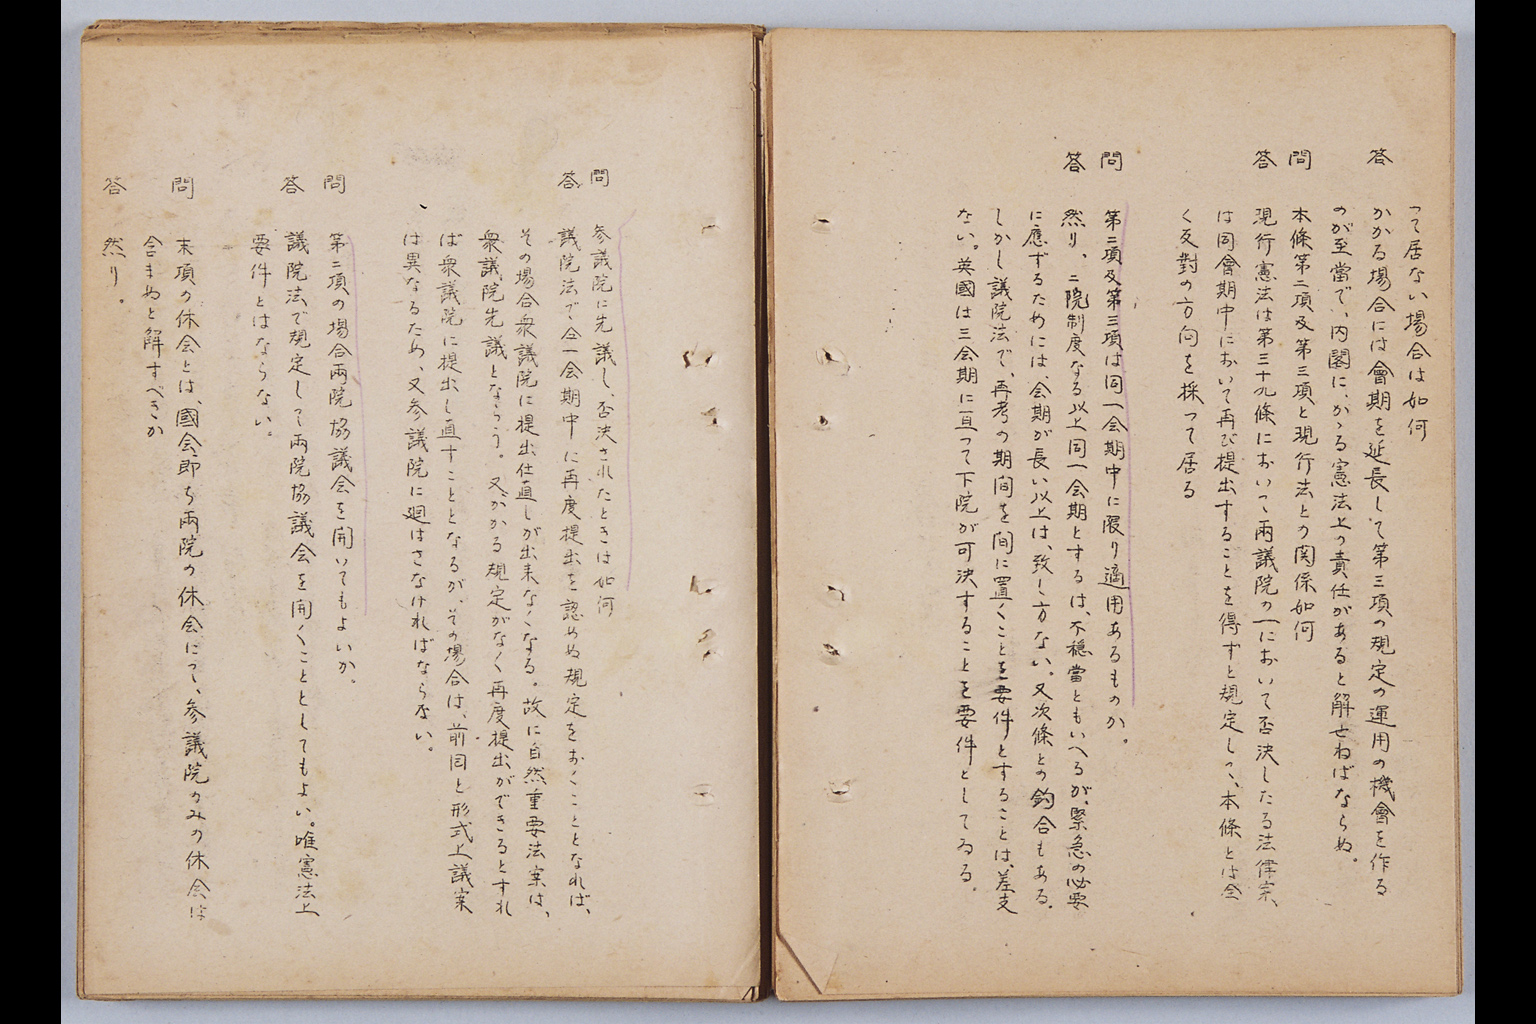 つて居ない場合は如何
答 かかる場合には會期を延長して第三項の規定の運用の機會を作る
のが至當で、内閣に、かゝる憲法上の責任があると解せねばならぬ。
問 本條第二項及第三項と現行法との関係如何
答 現行憲法は第三十九條において両議院の一において否決したる法律案、
は同會期中において再び提出することを得ずと規定しつゝ、本條とは全
く反對の方向を採つて居る
問 第二項及第三項は同一会期中に限り適用あるものか。
答 然り、二院制度なる以上同一会期とするは、不穏當ともいへるが、緊急の必要
に應ずるためには、会期が長い以上は、致し方ない。又次條との釣合もある。
しかし議院法で、再考の期间を间に置くことを要件とすることは、差支
ない。英國は三会期に亘つて下院が可決することを要件としてゐる。
問 参議院に先議し、否決されたときは如何
答 議院法で仝一会期中に再度提出を認めぬ規定をおくこととなれば、
その場合衆議院に提出仕直しが出来なくなる。故に自然重要法案は、
衆議院先議とならう。又かかる規定がなく再度提出ができるとすれ
ば衆議院に提出し直すこととなるが、その場合は、前回と形式上議案
は異なるため、又参議院に廻はさなければならない。
問 第二項の場合両院協議会を開いてもよいか。
答 議院法で規定して両院協議会を開くこととしてもよい。唯憲法上
要件とはならない。
問 末項の休会とは、國会即ち両院の休会にて、参議院のみの休会は
含まぬと解すべきか
答 然り。